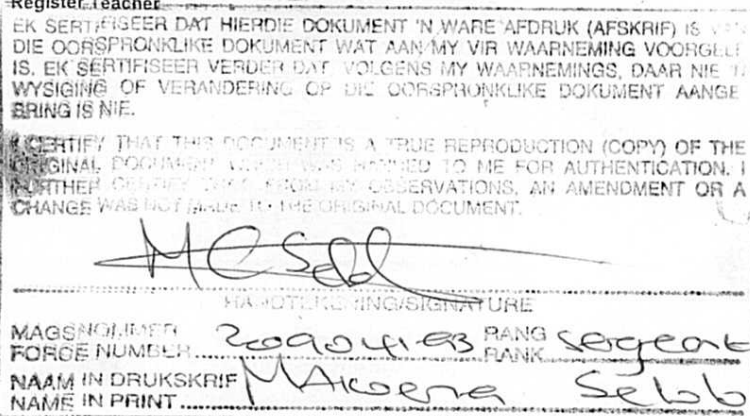 Register Teacher
EK SERTIFISEER DAT HIERDIE DOKUMENT 'N WARE AFDRUK (AFSKRIF) IS VAN
DIE OORSPRONKLIKE DOKUMENT WAT AAN MY VIR WAARNEMING VOORGELE
IS. EK SERTIFISEER VERDER DAT VOLGENS MY WAARNEMINGS, DAAR NIE 'N
WYSIGING OF VERANDERING OP DIE OORSPRONKLIKE DOKUMENT AANGE
BRING IS NIE.
I CERTIFY THAT THIS DOCUMENT IS A TRUE REPRODUCTION (COPY) OF THE
ORIGINAL DOCUMENT WHICH WAS HANDED TO ME FOR AUTHENTICATION. I
FURTHER CERTIFY THAT, FROM MY OBSERVATIONS, AN AMENDMENT OR A
CHANGE WAS NOT MADE TO THE ORIGINAL DOCUMENT.
HANDTEKENING/SIGNATURE
MAGSNOMMER RANG sergeant
FORCE NUMBER RANK
NAAM IN DRUKSKRIF
NAME IN PRINT